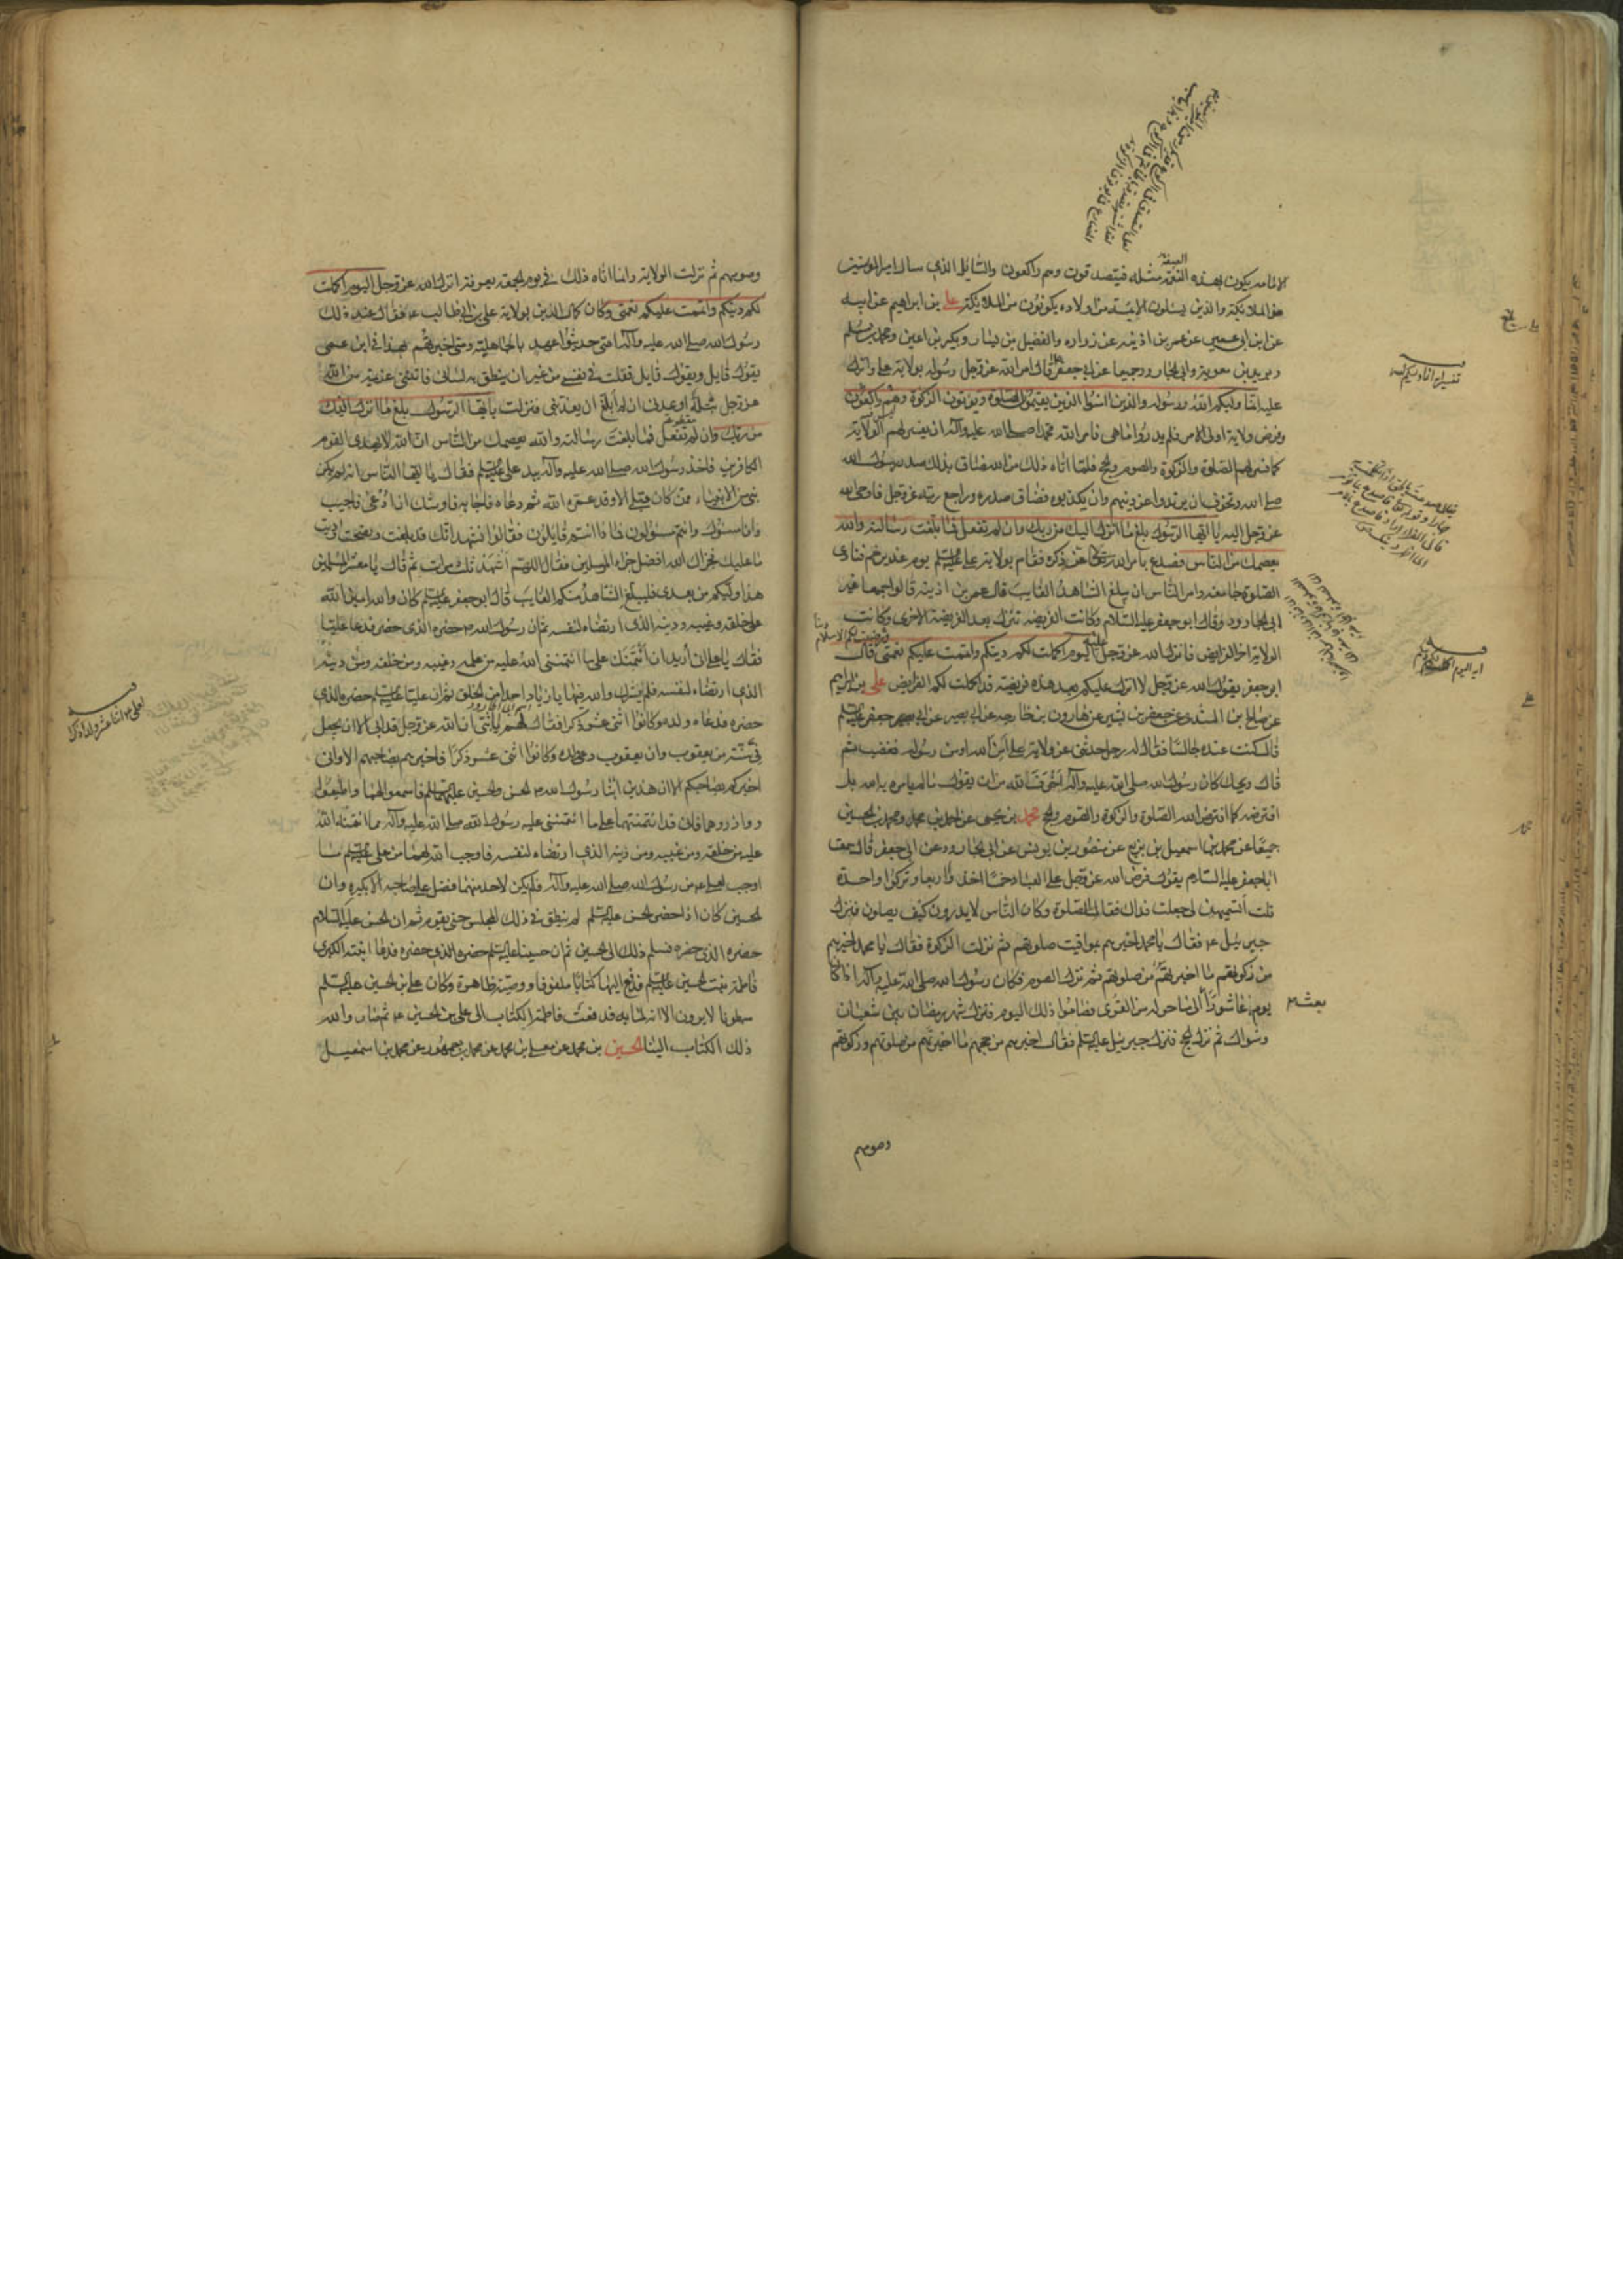 الامامه يكون بهذه النعمة مثله فيتصدقون وهم راكعون والسائل الذي سال اميرالمؤمنين
من الملائكة والذين يسئلون الائمة من اولاده يكونون من الملائكة علي بن ابراهيم عن ابيه
عن ابن ابي عمير عن عمر بن اذينه عن زراره والفضيل بن يسار وبكير بن اعين ومحمد بن مسلم
وبريد بن معوية وابي الجارود جميعا عن ابي جعفر قال امر الله عز وجل رسوله بولاية علي وانزل
عليه انما وليكم الله ورسوله والذين امنوا الذين يقيمون الصلوة ويؤتون الزكوة وهم راكعون
وفرض ولاية اولي الامر فلم يدروا ما هي فامر الله محمدا صلى الله عليه وآله ان يفسر لهم الولاية
كما فسر لهم الصلوة والزكوة والصوم والحج فلما اتاه ذلك من الله ضاق بذلك صدر رسول الله
صلى الله وتخوف ان يرتدوا عن دينهم وان يكذبوه فضاق صدره وراجع ربه عز وجل فاوحى الله
عز وجل اليه يا ايها الرسول بلغ ما انزل اليك من ربك وان لم تفعل فما بلغت رسالته والله
يعصمك من الناس فصدع بامر الله تعالى ذكره فقام بولاية علي عليه السلم يوم غدير خم فنادى
الصلوة جامعه وامر الناس ان يبلغ الشاهد الغايب قال عمر بن اذينه قالوا جميعا غير
ابي الجارود وقال ابو جعفر عليه السلام وكانت الفريضة تنزل بعد الفريضة الاخرى وكانت
الولاية اخر الفرايض فانزل الله عز وجل اليوم اكملت لكم دينكم واتممت عليكم نعمتي قال
ورضيت لكم الاسلام دينا
ابو جعفر يقول الله عز وجل لا انزل عليكم بعد هذه فريضة قد اكملت لكم الفرايض علي بن ابراهيم
عن صالح بن السندي عن جعفر بن بشير عن هارون بن خارجه عن ابي بصير عن ابي جعفر عليه السلم
قال كنت عنده جالسا فقال له رجل حدثني عن ولاية علي امن الله او من رسوله فغضب ثم
قال ويحك كان رسول الله صلى الله عليه وآله اخوف لله من ان يقول ما لم يامره به الله بل
افترضه كما افترض الله الصلوة والزكوة والصوم والحج محمد بن يحيى عن احمد بن محمد ومحمد بن الحسين
جميعا عن محمد بن اسمعيل بن بزيع عن منصور بن يونس عن ابي الجارود عن ابي جعفر قال سمعت
اباجعفر عليه السلام يقول فرض الله عز وجل على العباد خمسا اخذوا اربعا وتركوا واحدة
قلت أتسميهن لي جعلت فداك فقال الصلوة وكان الناس لا يدرون كيف يصلون فنزل
جبرئيل ع فقال يا محمد اخبرهم بمواقيت صلوتهم ثم نزلت الزكوة فقال يا محمد اخبرهم
من زكوتهم ما اخبرتهم من صلوتهم ثم نزل الصوم فكان رسول الله صلى الله عليه وآله اذا كان
يوم عاشورا الى ما حوله من القرى فصاموا ذلك اليوم فنزل شهر رمضان بين شعبان
بعث
وشوال ثم نزل الحج فنزل جبرئيل عليه السلم فقال اخبرهم من حجهم ما اخبرتهم من صلوتهم وزكوتهم
وصومهم
وصومهم ثم نزلت الولاية وانما اتاه ذلك في يوم الجمعة بعرفة انزل الله عز وجل اليوم اكملت
لكم دينكم واتممت عليكم نعمتي وكان كمال الدين بولاية علي بن ابي طالب ع فقال عند ذلك
رسول الله صلى الله عليه وآله امتي حديثوا عهد بالجاهلية ومتى اخبرتهم بهذا في ابن عمي
يقول قايل ويقول قايل فقلت في نفسي من غير ان ينطق به لساني فاتتني عزيمة من الله
عز وجل بتلة اوعدني ان لم ابلغ ان يعذبني فنزلت يا ايها الرسول بلغ ما انزل اليك
من ربك وان لم تفعل فما بلغت رسالته والله يعصمك من الناس ان الله لا يهدي القوم
الكافرين فاخذ رسول الله صلى الله عليه وآله بيد علي عليه السلم فقال يا ايها الناس انه لم يكن
نبي من الانبياء ممن كان قبلي الا وقد عمره الله ثم دعاه فاجابه فاوشك ان ادعى فاجيب
وانا مسئول وانتم مسؤلون فماذا انتم قايلون فقالوا نشهد انك قد بلغت ونصحت واديت
ما عليك فجزاك الله افضل جزاء المرسلين فقال اللهم اشهد ثلث مرات ثم قال يا معشر المسلمين
هذا وليكم من بعدي فليبلغ الشاهد منكم الغايب قال ابو جعفر عليه السلم كان والله امين الله
على خلقه وغيبه ودينه الذي ارتضاه لنفسه ثم ان رسول الله ص حضره الذي حضر فدعا عليا
فقال يا علي اني أريد ان أئتمنك على ما ائتمنني الله عليه من علمه وغيبه ومن خلقه ومن دينه
الذي ارتضاه لنفسه فلم يشرك والله فيها يا زياد احدا من الخلق ثم ان عليا عليه السلم حضره الذي
حضره فدعاه ولده وكانوا اثنى عشر ذكرا فقال لهم يا بني ان الله عز وجل قد ابى الا ان يجعل
في سنة من يعقوب وان يعقوب دعا ولده وكانوا اثنى عشر ذكرا فاخبرهم بصاحبهم الا واني
اخبركم بصاحبكم الا ان هذين ابنا رسول الله ص الحسن والحسين عليهما السلم فاسمعوا لهما واطيعوا
ووازروهما فاني قد ائتمنتهما على ما ائتمنني عليه رسول الله صلى الله عليه وآله مما ائتمنه الله
عليه من خلقه ومن غيبه ومن دينه الذي ارتضاه لنفسه فاوجب الله لهما من علي عليه السلم ما
اوجب لعلي ع من رسول الله صلى الله عليه وآله فلم يكن لاحد منهما فضل على صاحبه الا بكبره وان
الحسين كان اذا حضر الحسن عليه السلم لم ينطق في ذلك المجلس حتى يقوم ثم ان الحسن عليه السلام
حضره الذي حضره فسلم ذلك الى الحسين ثم ان حسينا عليه السلم حضره الذي حضره فدعا ابنته الكبرى
فاطمة بنت الحسين عليه السلم فدفع اليها كتابا ملفوفا ووصية ظاهرة وكان علي بن الحسين عليه السلم
مبطونا لا يرون الا انه لما به فدفعت فاطمة الكتاب الى علي بن الحسين ع ثم صار والله
ذلك الكتاب الينا الحسين بن محمد عن معلى بن محمد عن محمد بن جمهور عن محمد بن اسمعيل